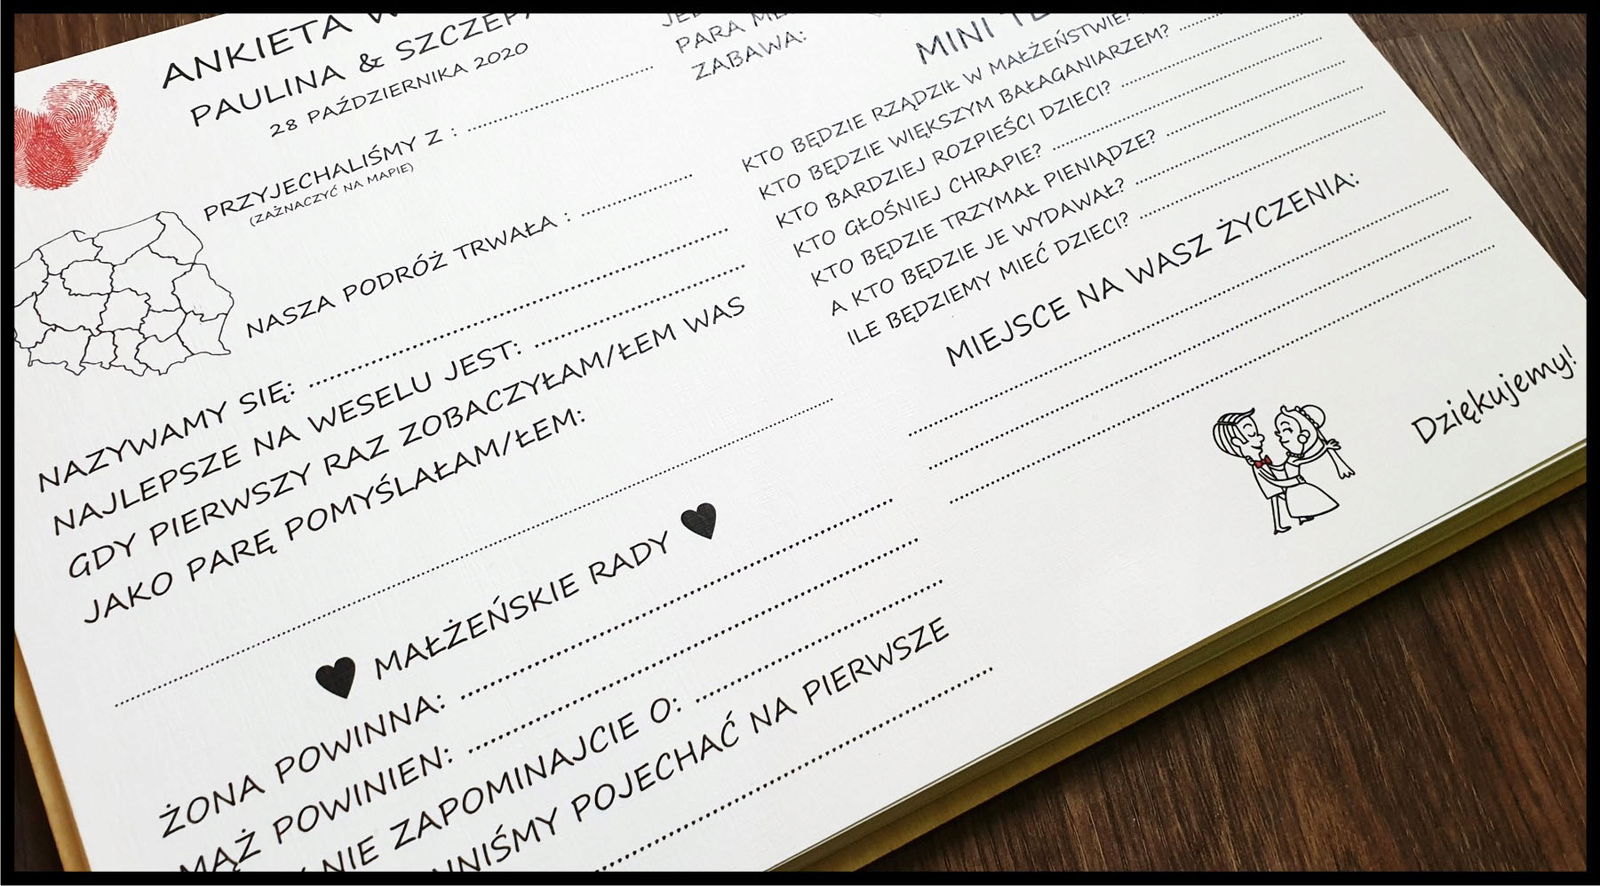 ANKIETA
PAULINA &
28 PAŹDZIERNIKA 2020
PRZYJECHALIŚMY Z : ....................
(ZAZNACZYĆ NA MAPIE)
NASZA PODRÓŻ TRWAŁA : ....................
NAZYWAMY SIĘ: ....................
NAJLEPSZE NA WESELU JEST: ....................
GDY PIERWSZY RAZ ZOBACZYŁAM/ŁEM WAS
JAKO PARĘ POMYŚLAŁAM/ŁEM:
♥ MAŁŻEŃSKIE RADY ♥
ŻONA POWINNA: ....................
MĄŻ POWINIEN: ....................
NIE ZAPOMINAJCIE O: ....................
POJECHAĆ NA PIERWSZE
PARA
ZABAWA:
MINI
KTO BĘDZIE RZĄDZIŁ W MAŁŻEŃSTWIE?
KTO BĘDZIE WIĘKSZYM BAŁAGANIARZEM? ....................
KTO BARDZIEJ ROZPIEŚCI DZIECI? ....................
KTO GŁOŚNIEJ CHRAPIE? ....................
KTO BĘDZIE TRZYMAŁ PIENIĄDZE? ....................
A KTO BĘDZIE JE WYDAWAŁ? ....................
ILE BĘDZIEMY MIEĆ DZIECI? ....................
MIEJSCE NA WASZ ŻYCZENIA:
Dziękujemy!